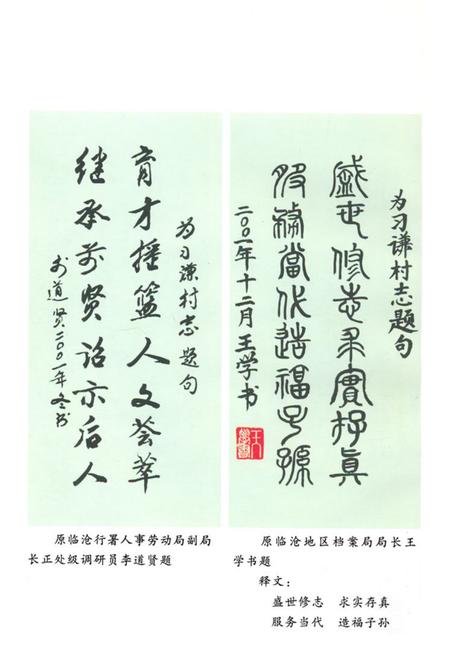 为习谦村志题句
育才摇篮人文荟萃
继承前贤诏示后人
李道贤二〇〇一年冬书
原临沧行署人事劳动局副局
长正处级调研员李道贤题
为习谦村志题句
盛世修志求实存真
服务当代造福子孙
二〇〇一年十二月王学书
王学书
原临沧地区档案局局长王
学书题
释文：
盛世修志 求实存真
服务当代 造福子孙